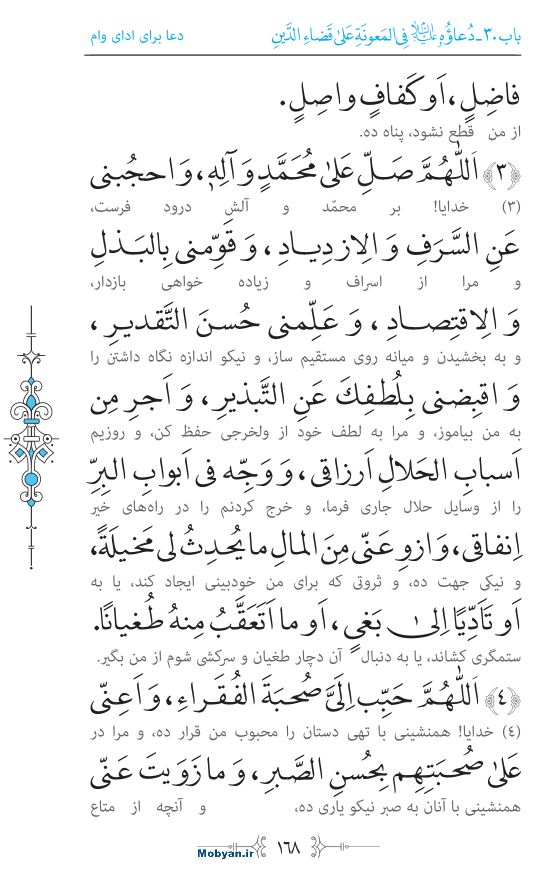 باب ۳۰ـ دُعاؤُهُ علیه‌السلام فِی المَعونَةِ عَلیٰ قَضاءِ الدَّینِ
دعا برای ادای وام
فاضِلٍ، اَو کَفافٍ واصِلٍ.
از من قطع نشود، پناه ده.
﴿۳﴾ اَللّٰهُمَّ صَلِّ عَلیٰ مُحَمَّدٍ وَ آلِهِ، وَ احجُبنی
(۳) خدایا! بر محمّد و آلش درود فرست،
عَنِ السَّرَفِ وَ الاِزدِیادِ، وَ قَوِّمنی بِالبَذلِ
و مرا از اسراف و زیاده خواهی بازدار،
وَ الاِقتِصادِ، وَ عَلِّمنی حُسنَ التَّقدیرِ،
و به بخشیدن و میانه روی مستقیم ساز، و نیکو اندازه نگاه داشتن را
وَ اقبِضنی بِلُطفِكَ عَنِ التَّبذیرِ، وَ اَجرِ مِن
به من بیاموز، و مرا به لطف خود از ولخرجی حفظ کن، و روزیم
اَسبابِ الحَلالِ اَرزاقی، وَ وَجِّه فی اَبوابِ البِرِّ
را از وسایل حلال جاری فرما، و خرج کردنم را در راه‌های خیر
اِنفاقی، وَ ازوِ عَنّی مِنَ المالِ ما یُحدِثُ لی مَخیلَةً،
و نیکی جهت ده، و ثروتی که برای من خودبینی ایجاد کند، یا به
اَو تَأَدِّیًا اِلیٰ بَغیٍ، اَو ما اَتَعَقَّبُ مِنهُ طُغیانًا.
ستمگری کشاند، یا به دنبال آن دچار طغیان و سرکشی شوم از من بگیر.
﴿٤﴾ اَللّٰهُمَّ حَبِّب اِلَیَّ صُحبَةَ الفُقَراءِ، وَ اَعِنّی
(٤) خدایا! همنشینی با تهی دستان را محبوب من قرار ده، و مرا در
عَلیٰ صُحبَتِهِم بِحُسنِ الصَّبرِ، وَ ما زَوَیتَ عَنّی
همنشینی با آنان به صبر نیکو یاری ده، و آنچه از متاع
۱۶۸
Mobyan.ir